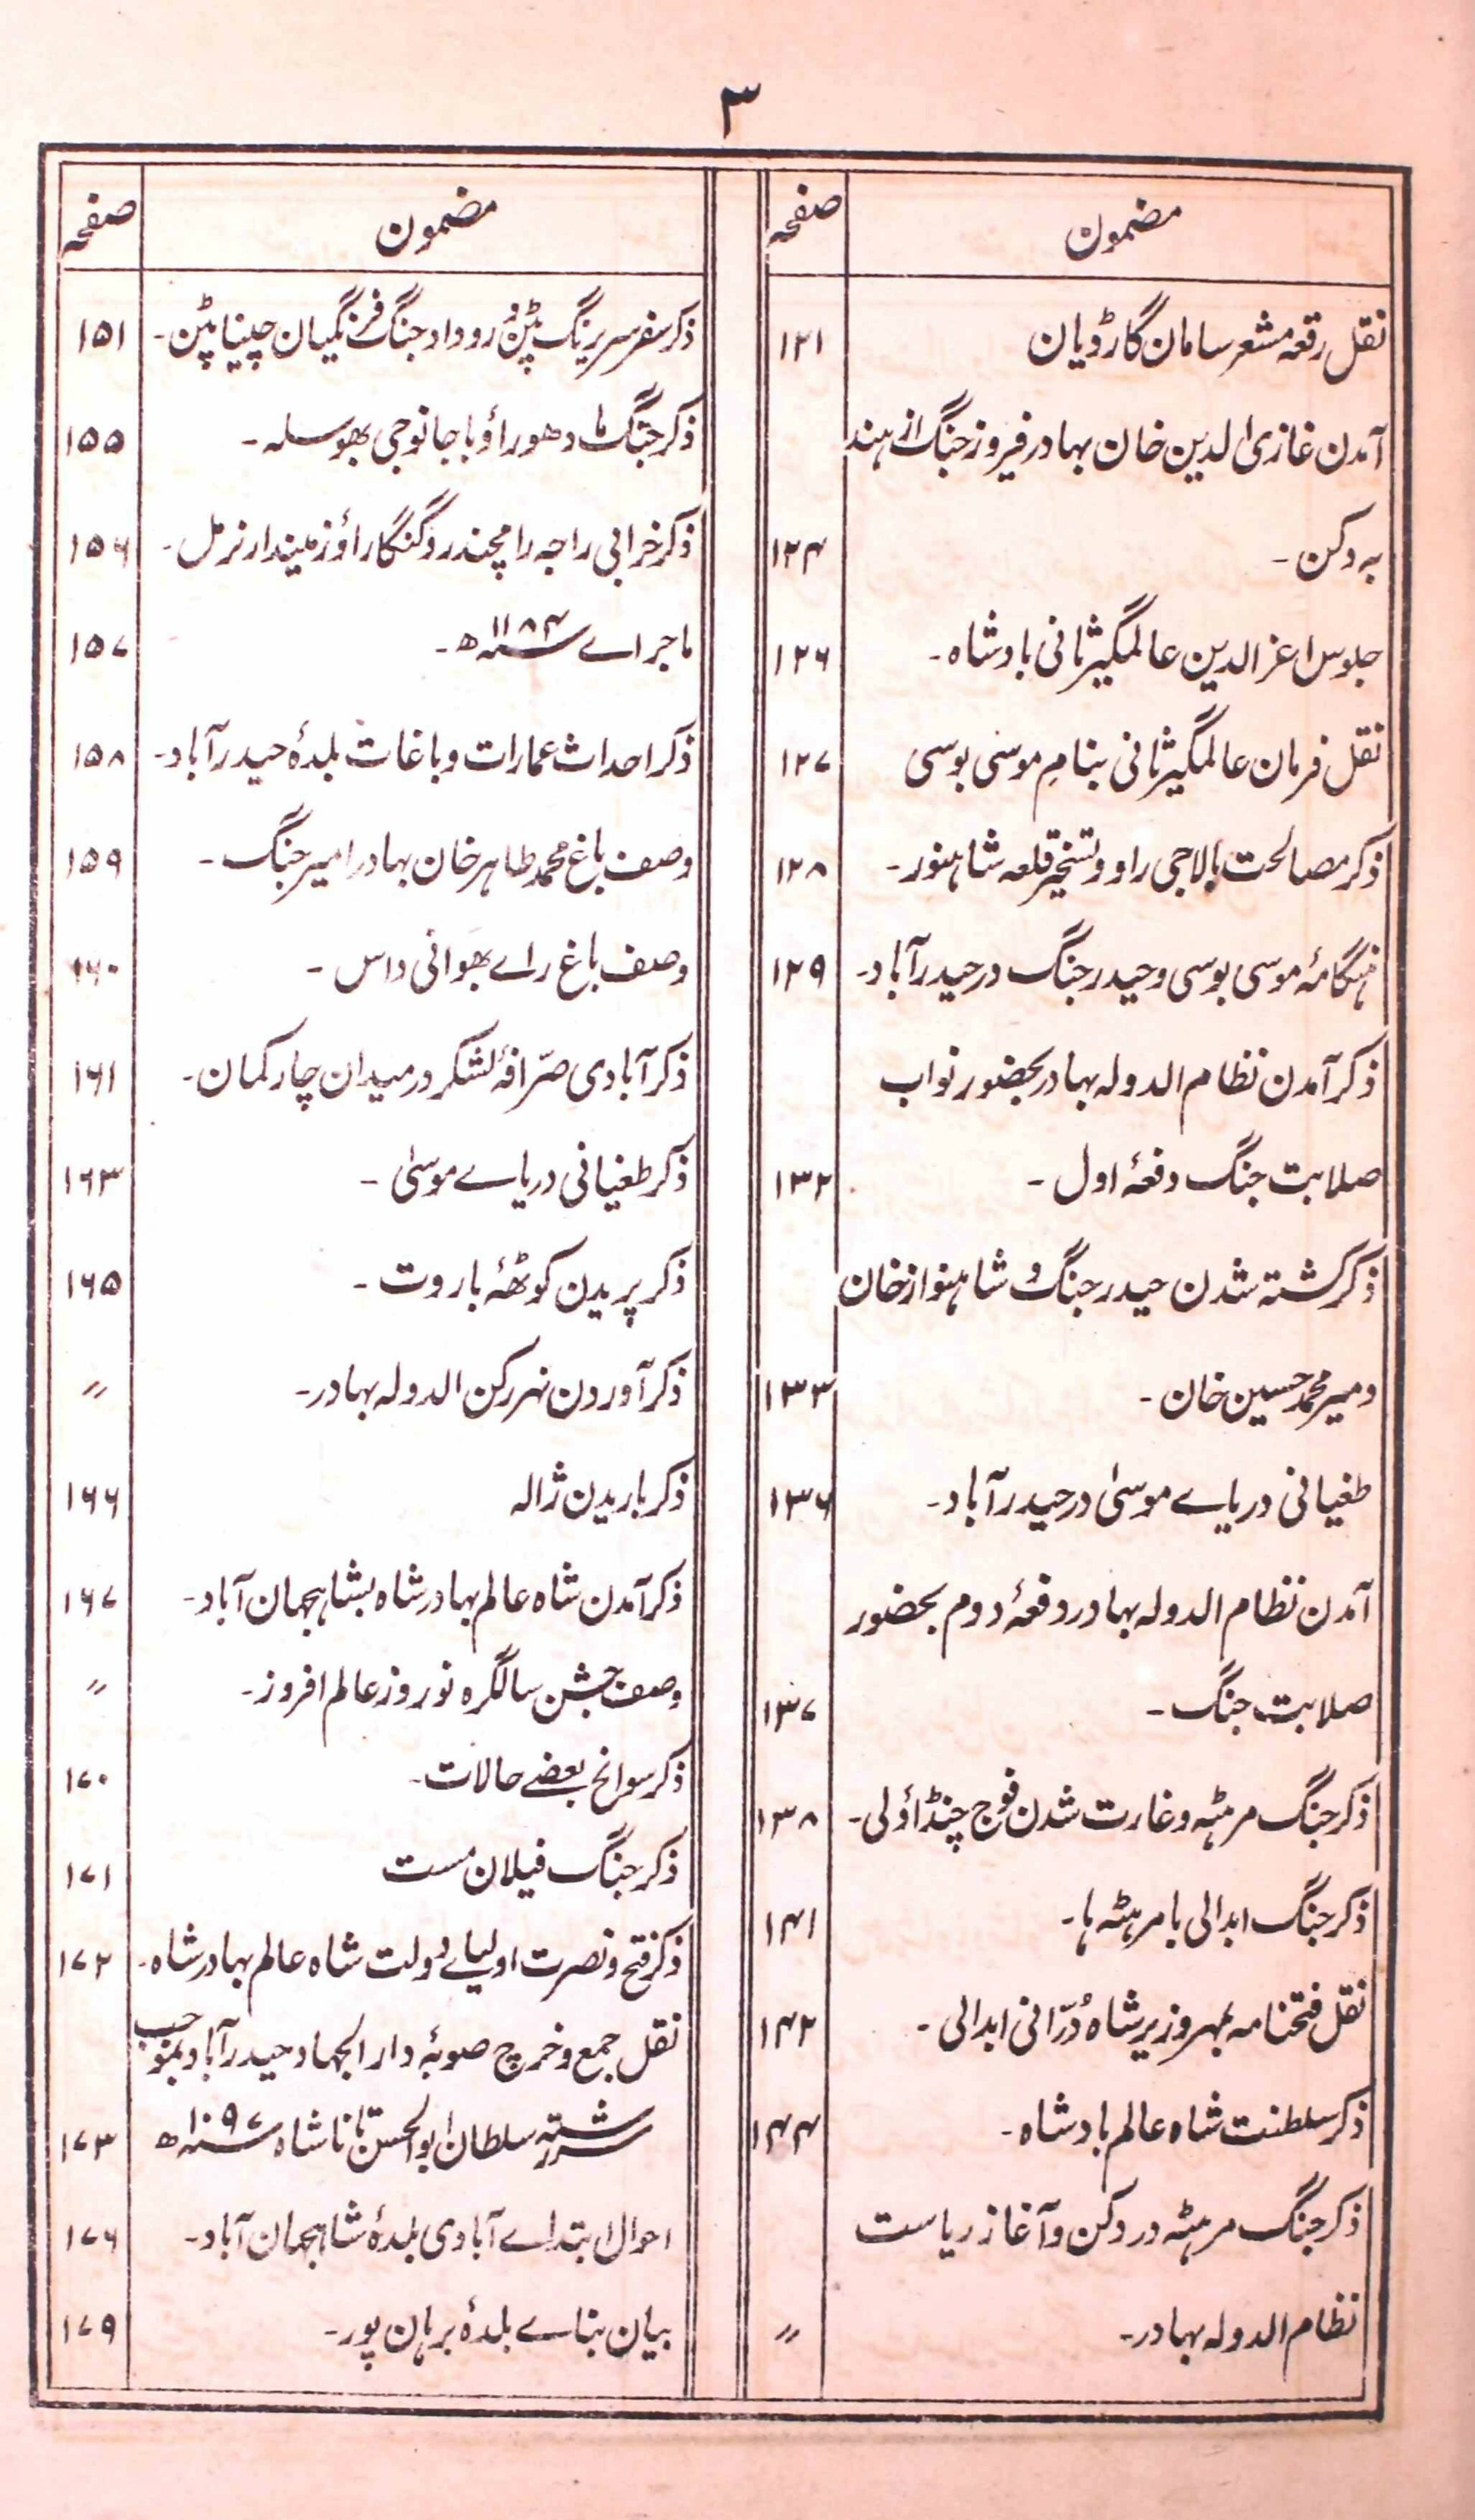 ۳
مضمون صفحہ
نقل رقعہ مشعر سامان گارڈیان ۱۲۱
آمدن غازی الدین خان بہادر فیروز جنگ از ہند
بہ دکن۔ ۱۲۴
جلوس اعز الدین عالمگیر ثانی بادشاہ۔ ۱۲۶
نقل فرمان عالمگیر ثانی بنام موسی بوسی ۱۲۷
ذکر مصالحت بالاجی راو و تسخیر قلعہ شاہنور۔ ۱۲۸
ہنگامۂ موسی بوسی و حیدر جنگ در حیدرآباد۔ ۱۲۹
ذکر آمدن نظام الدولہ بہادر بحضور نواب
صلابت جنگ دفعۂ اول۔ ۱۳۲
ذکر کشتہ شدن حیدر جنگ و شاہنواز خان
و میر محمد حسین خان۔ ۱۳۳
طغیانی دریاے موسیٰ در حیدرآباد۔ ۱۳۶
آمدن نظام الدولہ بہادر دفعۂ دوم بحضور
صلابت جنگ۔ ۱۳۷
ذکر جنگ مرہٹہ و غارت شدن فوج چنڈاؤلی۔ ۱۳۸
ذکر جنگ ابدالی با مرہٹہ ہا۔ ۱۴۱
نقل فتحنامہ بمہر وزیر شاہ دُرّانی ابدالی۔ ۱۴۲
ذکر سلطنت شاہ عالم بادشاہ۔ ۱۴۴
ذکر جنگ مرہٹہ در دکن و آغاز ریاست
نظام الدولہ بہادر۔ 〃
مضمون صفحہ
ذکر سفر سریرنگ پٹن و روداد جنگ فرنگیان چیناپٹن۔ ۱۵۱
ذکر جنگ مادھوراؤ با جانوجی بھوسلہ۔ ۱۵۵
ذکر خرابی راجہ رامچندر و گنگاراؤ زمیندار نرمل۔ ۱۵۶
ماجراے ۱۱۸۴ سنہ ھ۔ ۱۵۷
ذکر احداث عمارات و باغات بلدۂ حیدرآباد۔ ۱۵۸
وصف باغ محمد طاہر خان بہادر امیر جنگ۔ ۱۵۹
وصف باغ راے بھوانی داس۔ ۱۶۰
ذکر آبادی صرّافۂ لشکر در میدان چار کمان۔ ۱۶۱
ذکر طغیانی دریاے موسیٰ۔ ۱۶۳
ذکر پریدن کوٹھۂ باروت۔ ۱۶۵
ذکر آوردن نہر رکن الدولہ بہادر۔ 〃
ذکر باریدن ژالہ ۱۶۶
ذکر آمدن شاہ عالم بہادر شاہ بشاہجہان آباد۔ ۱۶۷
وصف جشن سالگرہ نوروز عالم افروز۔ 〃
ذکر سوانح بعضے حالات۔ ۱۷۰
ذکر جنگ فیلان مست ۱۷۱
ذکر فتح و نصرت اولیاے دولت شاہ عالم بہادر شاہ۔ ۱۷۲
نقل جمع و خرچ صوبۂ دار الجہاد حیدرآباد بموجب
سررشتہ سلطان ابوالحسن تاناشاہ ۱۰۹۷ سنہ ھ ۱۷۳
احوال ابتداے آبادی بلدۂ شاہجہان آباد۔ ۱۷۶
بیان بناے بلدۂ برہان پور۔ ۱۷۹